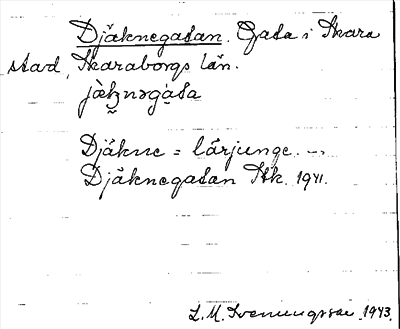 Djäknegatan. Gata i Skara
stad, Skaraborgs län.
Djäkne = lärjunge. —
Djäknegatan Stk. 1941.
L. M. Svenungsson 1943.